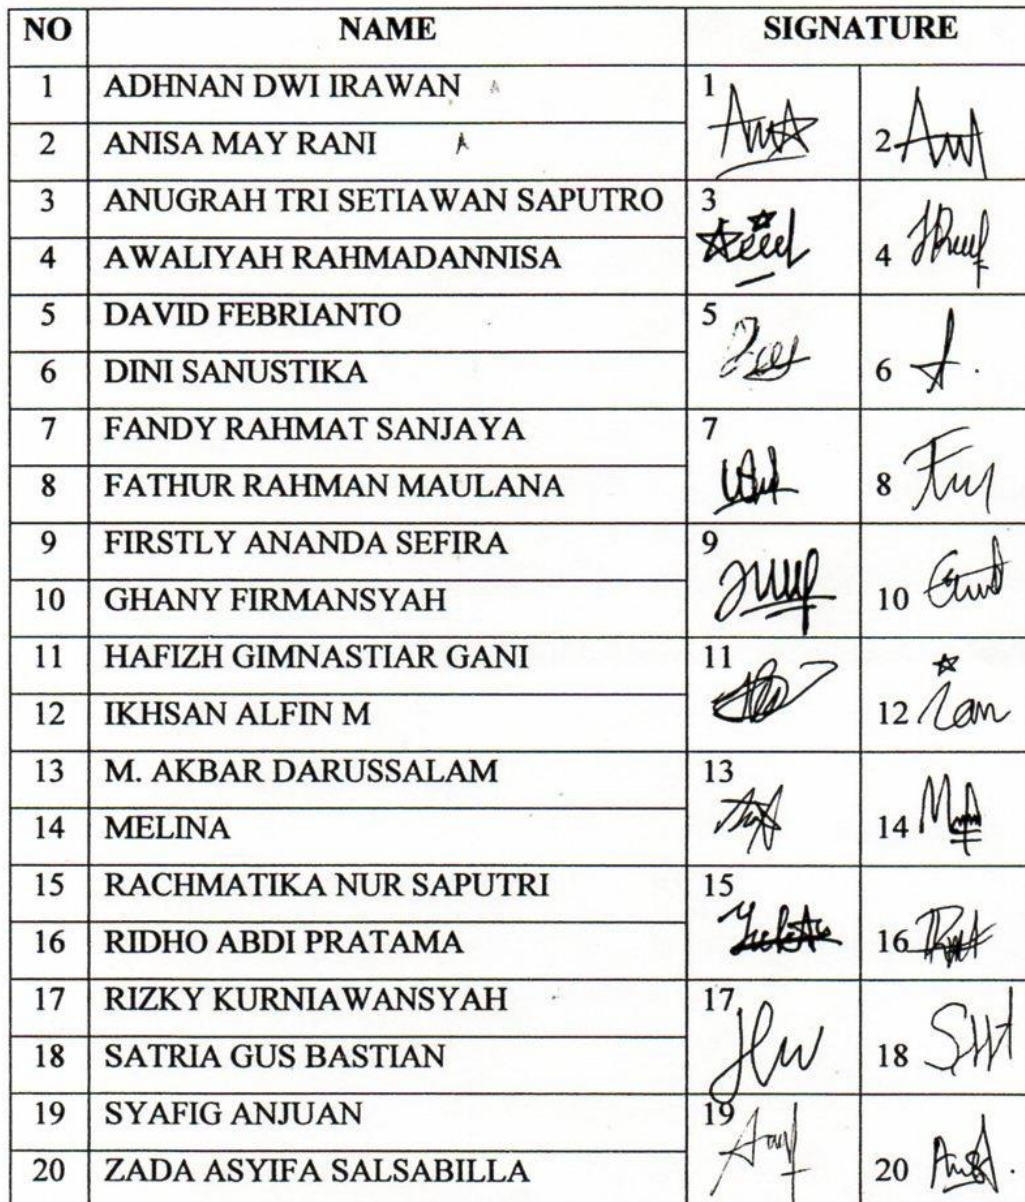 NO NAME SIGNATURE
1 ADHNAN DWI IRAWAN 1
2 ANISA MAY RANI 2
3 ANUGRAH TRI SETIAWAN SAPUTRO 3
4 AWALIYAH RAHMADANNISA 4
5 DAVID FEBRIANTO 5
6 DINI SANUSTIKA 6
7 FANDY RAHMAT SANJAYA 7
8 FATHUR RAHMAN MAULANA 8
9 FIRSTLY ANANDA SEFIRA 9
10 GHANY FIRMANSYAH 10
11 HAFIZH GIMNASTIAR GANI 11
12 IKHSAN ALFIN M 12
13 M. AKBAR DARUSSALAM 13
14 MELINA 14
15 RACHMATIKA NUR SAPUTRI 15
16 RIDHO ABDI PRATAMA 16
17 RIZKY KURNIAWANSYAH 17
18 SATRIA GUS BASTIAN 18
19 SYAFIG ANJUAN 19
20 ZADA ASYIFA SALSABILLA 20